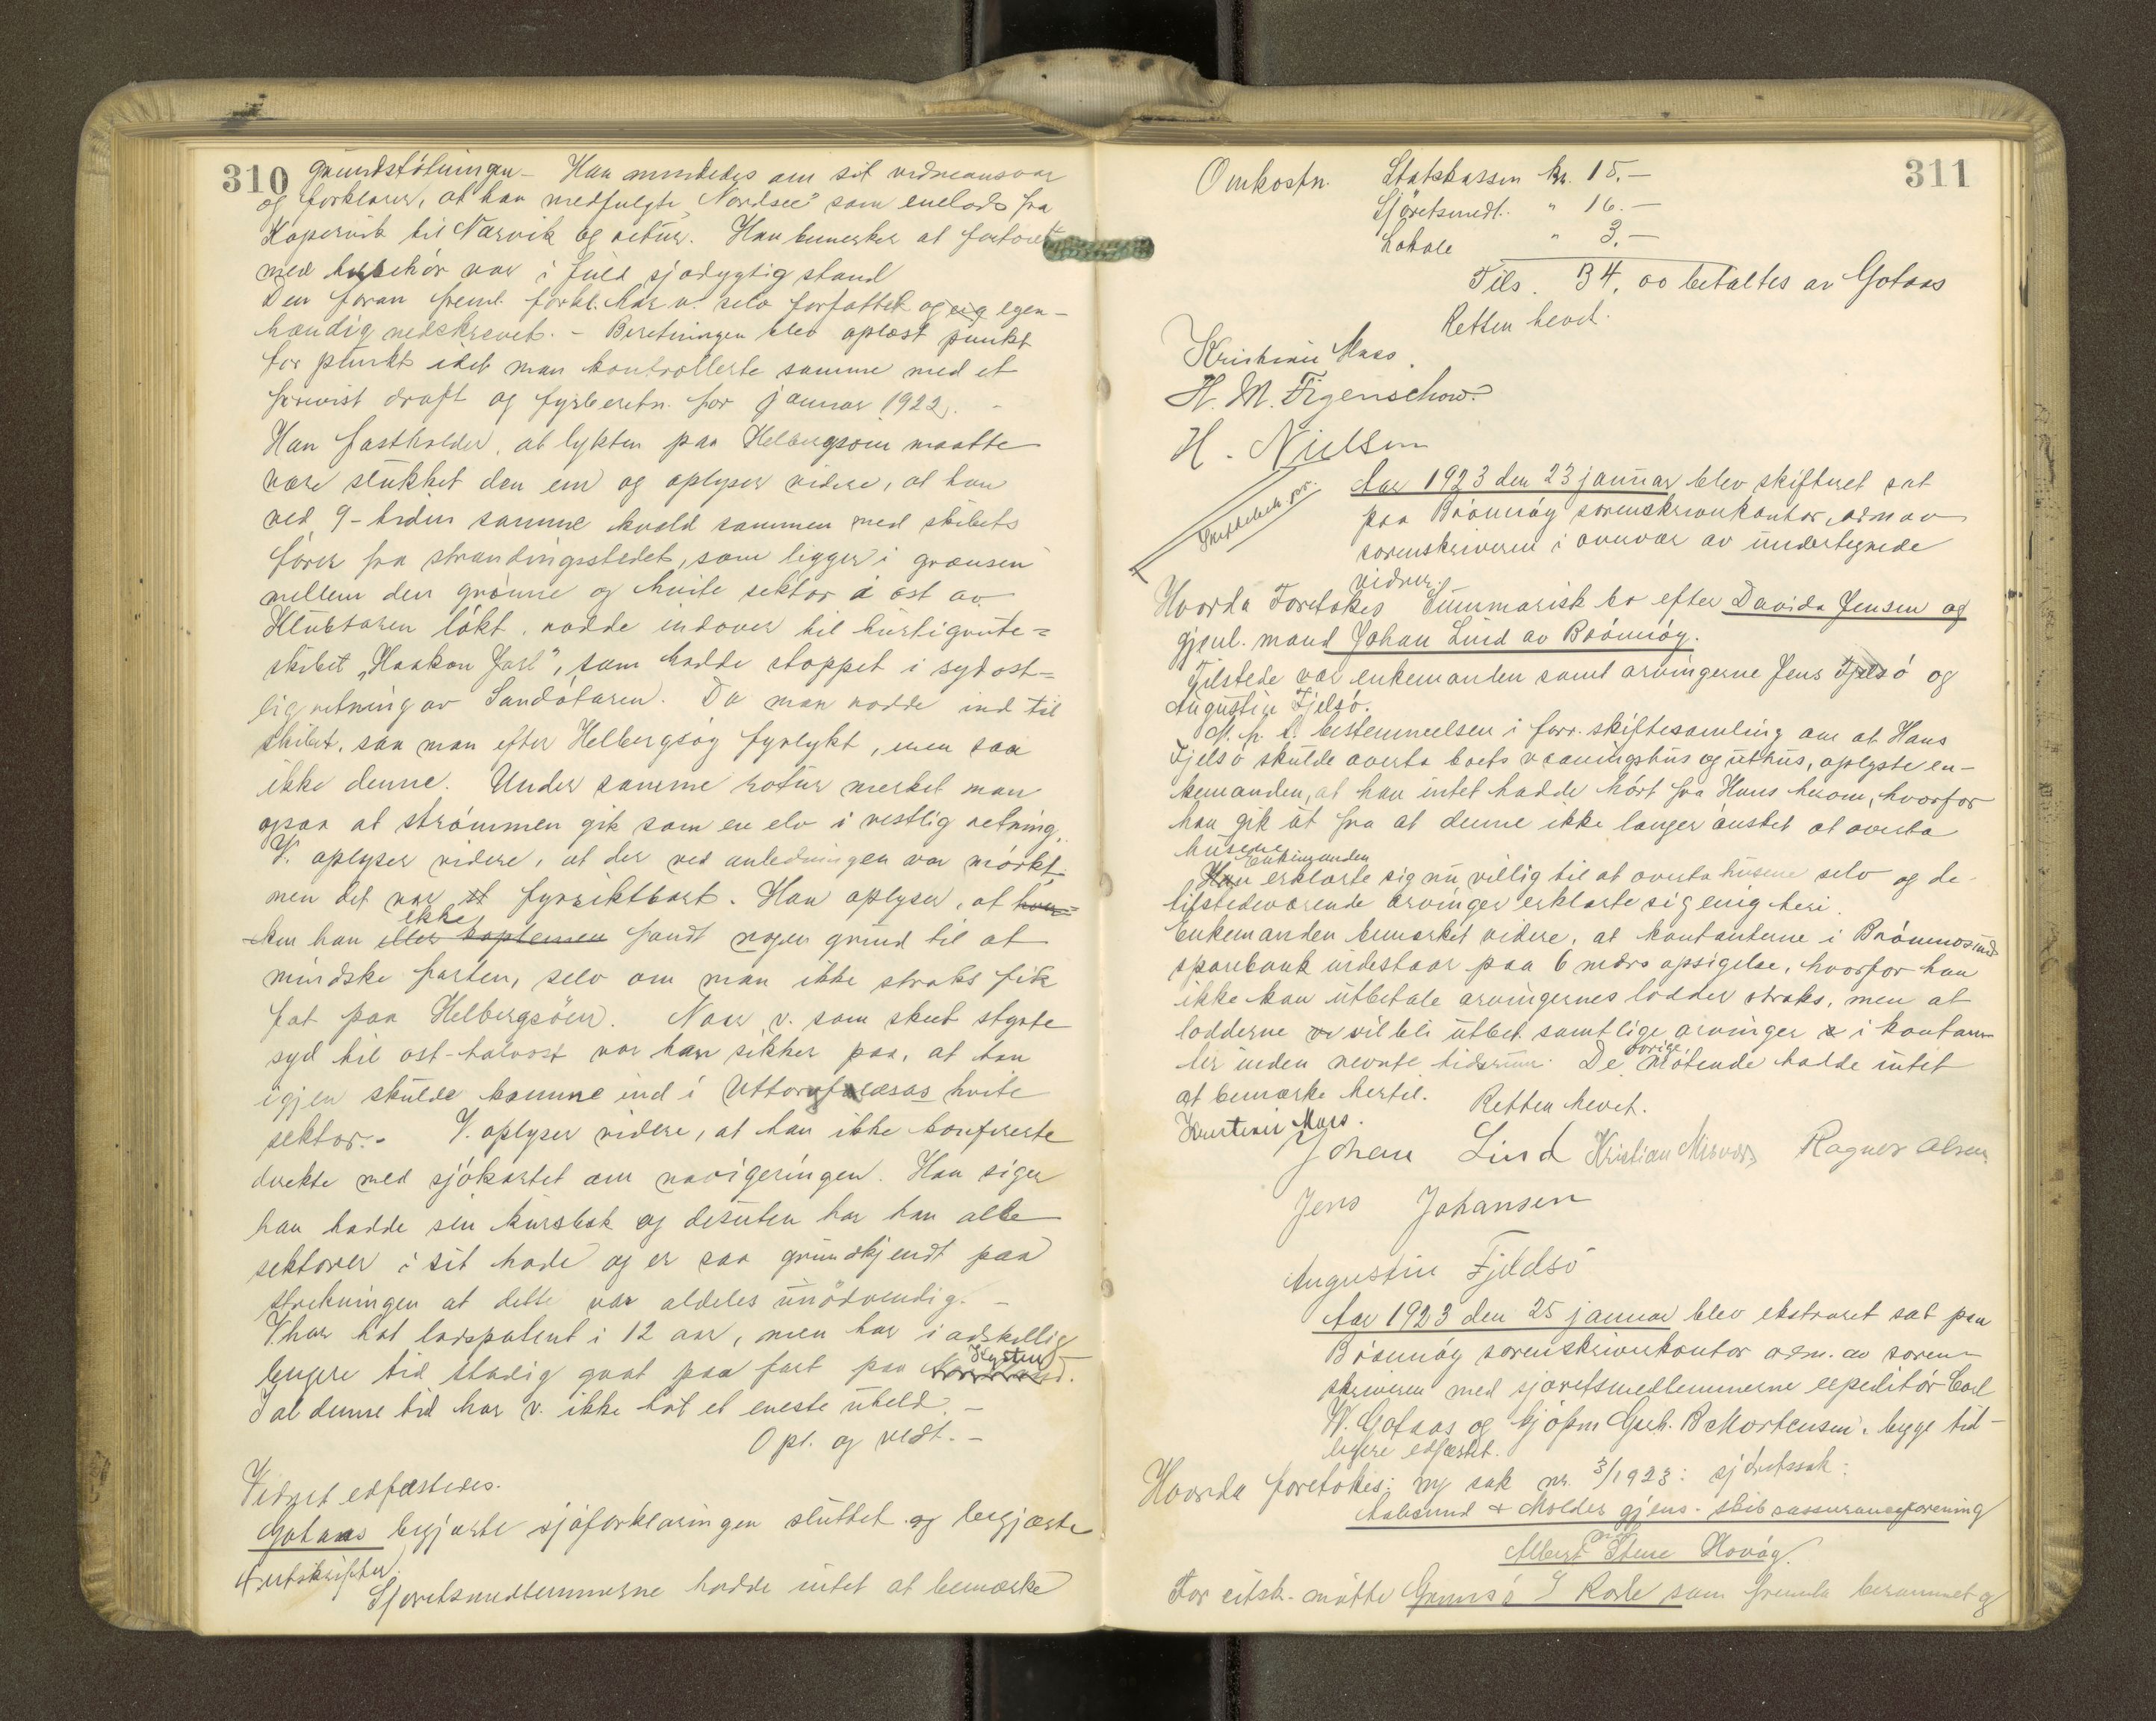 310
grundstötningen - Han mindedes om sit vidneansvar
og forklarer, at han medfulgte "Nordsee" som enelods fra
Kopervik til Narvik og retur. Han bemerker at fartöiet
med tilbehör var i fuld sjödygtig stand
Den foran freml. forkl. har v. selv forfattet og eig egen-
hændig nedskrevet. - Beretningen blev oplæst punkt
for punkt idet man kontrollerte samme med et
forevist draft og fyrberetn. for januar 1922. -
Han fastholder, at lykten paa Helbergsöin maatte
være slukket den em og oplyser videre, at han
ved 9-tiden samme kveld sammen med skibets
förer fra strandingsstedet, som ligger i grænsen
mellem den grönne og hvite sektor i öst av
Klubtaren lökt, rodde indover til hurtigrute-
skibet "Haakon Jarl", som hadde stoppet i sydöst-
lig retning av Sandötaren. Da man rodde ind til
skibet, saa man efter Helbergsöy fyrlykt, men saa
ikke denne. Under samme rotur merket man
ogsaa at strömmen gik som en elv i vestlig retning.
V. oplyser videre, at der ved anledningen var mörkt
men det var et fyrsiktbart. Han oplyser, at hver-
ken han eller kapteinen ikke fandt nogen grund til at
mindske farten, selv om man ikke straks fik
fat paa Helbergsöen. Naar v. som skeet styrte
syd til öst-halvöst var han sikker paa, at han
igjen skulde komme ind i Uttorgfalesas hvite
sektor. - V. oplyser videre, at han ikke konfererte
direkte med sjökartet om navigeringen. Han siger
han hadde sin kursbok og desuten har han alle
sektorer i sit hode og er saa grundkjendt paa
strekningen at dette var aldeles unödvendig. -
V. har hat lodspatent i 12 aar, men har i adskillig
lengere tid stadig gaat paa fart paa Nordland. Kysten
I al denne tid har v. ikke hat et eneste uheld. -
Opl. og vedt. -
Vidnet edfæstedes.
Gotaas begjærte sjöforklaringen sluttet og begjærte
4 utskrifter.
Sjöretsmedlemmerne hadde intet at bemærke
311
Omkostn. Statskassen kr. 15.-
Sjöretsmedl. " 16.-
Lokale " 3.-
Tils. 34,00 betaltes av Gotaas
Retten hevet.
Kristinii Maas
H. M. Figenschow
H. Nielsen
Aar 1923 den 23 januar blev skifteret sat
paa Brönnöy sorenskriverkontor, adm av
sorenskriveren i overvær av undertegnede
vidner.
Hvorda Foretokes Summarisk bo efter Davida Jensen og
gjenl. mand Johan Lind av Brönnöy.
Tilstede var enkemanden samt arvingerne Jens Fjelsö og
Augustin Fjelsö.
M. h. t. bestemmelsen i forr. skiftesamling om at Hans
Fjelsö skulde overta boets vaaningshus og uthus, oplyste en-
kemanden, at han intet hadde hört fra Hans herom, hvorfor
han gik ut fra at denne ikke længer önsket at overta
husene
Han Enkemanden erklærte sig nu villig til at overta husene selv og de
tilstedeværende arvinger erklærte sig enig heri.
Enkemanden bemærket videre, at kontanterne i Brönnösund
sparebank indestaar paa 6 mdrs opsigelse, hvorfor han
ikke kan utbetale arvingernes lodder straks, men at
lodderne vil bli utbet. samtlige arvinger i kontan-
ter inden nevnte tidsrum. De övrige mötende hadde intet
at bemærke hertil. Retten hevet.
Kristinii Maas.
Johan Lind Kristian Ragner Olsen
Jens Johansen
Augustin Fjeldsö
Aar 1923 den 25 januar blev ekstraret sat paa
Brönnöy sorenskriverkontor adm. av soren-
skriveren med sjöretsmedlemmerne expeditör Carl
W. Gotaas og kjöpm Gerh. B Mortensen, begge tid-
ligere edfæstet.
Hvorda foretokes: ny sak nr. 3/1923: sjöretssak:
Aalesund & Molde gjens. skibsassuranceforening
mot
Albert Stene Havöy.
For citsk. mötte Grannsö I Rode som fremla berammet og